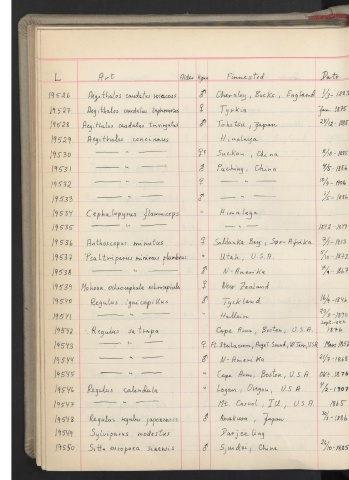 L Art Alder Kjønn Finnested Dato
19526 Aegithalos caudatus rosaceus ♂ Chorsley, Bucks, England
19527 Aegithalos caudatus ♀ Tyrkia Jan. 1875
19528 Aegithalos caudatus trivirgatus ♂ Tokitsu, Japan
19529 Aegithalos concinnus Himalaya
19530 — " — Suckon, China
19531 — " — ♂ Fuching, China
19532 — " — ♀ — " —
19533 — " — ♂ — " —
19534 Cephalopyrus flammiceps " Himalaya
19535 — " — — " —
19536 Anthoscopus minutus ♀ Saldanha Bay, Sør-Afrika
19537 Psaltriparus minimus plumbeus " Utah, U.S.A.
19538 — " — ♂ N-Amerika
19539 Mohoua ochrocephala ochrocephala ♀ New Zealand
19540 Regulus ignicapillus ♂ Tyskland
19541 — " — " Holland
19542 Regulus satrapa " Cape Ann, Boston, U.S.A.
19543 — " — ♀ Ft. Steilacoom, Puget Sound, W.Terr, USA
19544 — " — ♂ N-Amerika
19545 — " — " Cape Ann, Boston, U.S.A. Okt. 1876
19546 Regulus calendula " Logan, Oregon, U.S.A.
19547 — " — Mt. Carmel, Ill., U.S.A. 1865
19548 Regulus regulus japonensis ♂ Japan
19549 Sylviparus modestus Darjeeling
19550 Sitta europaea sinensis ♂ China